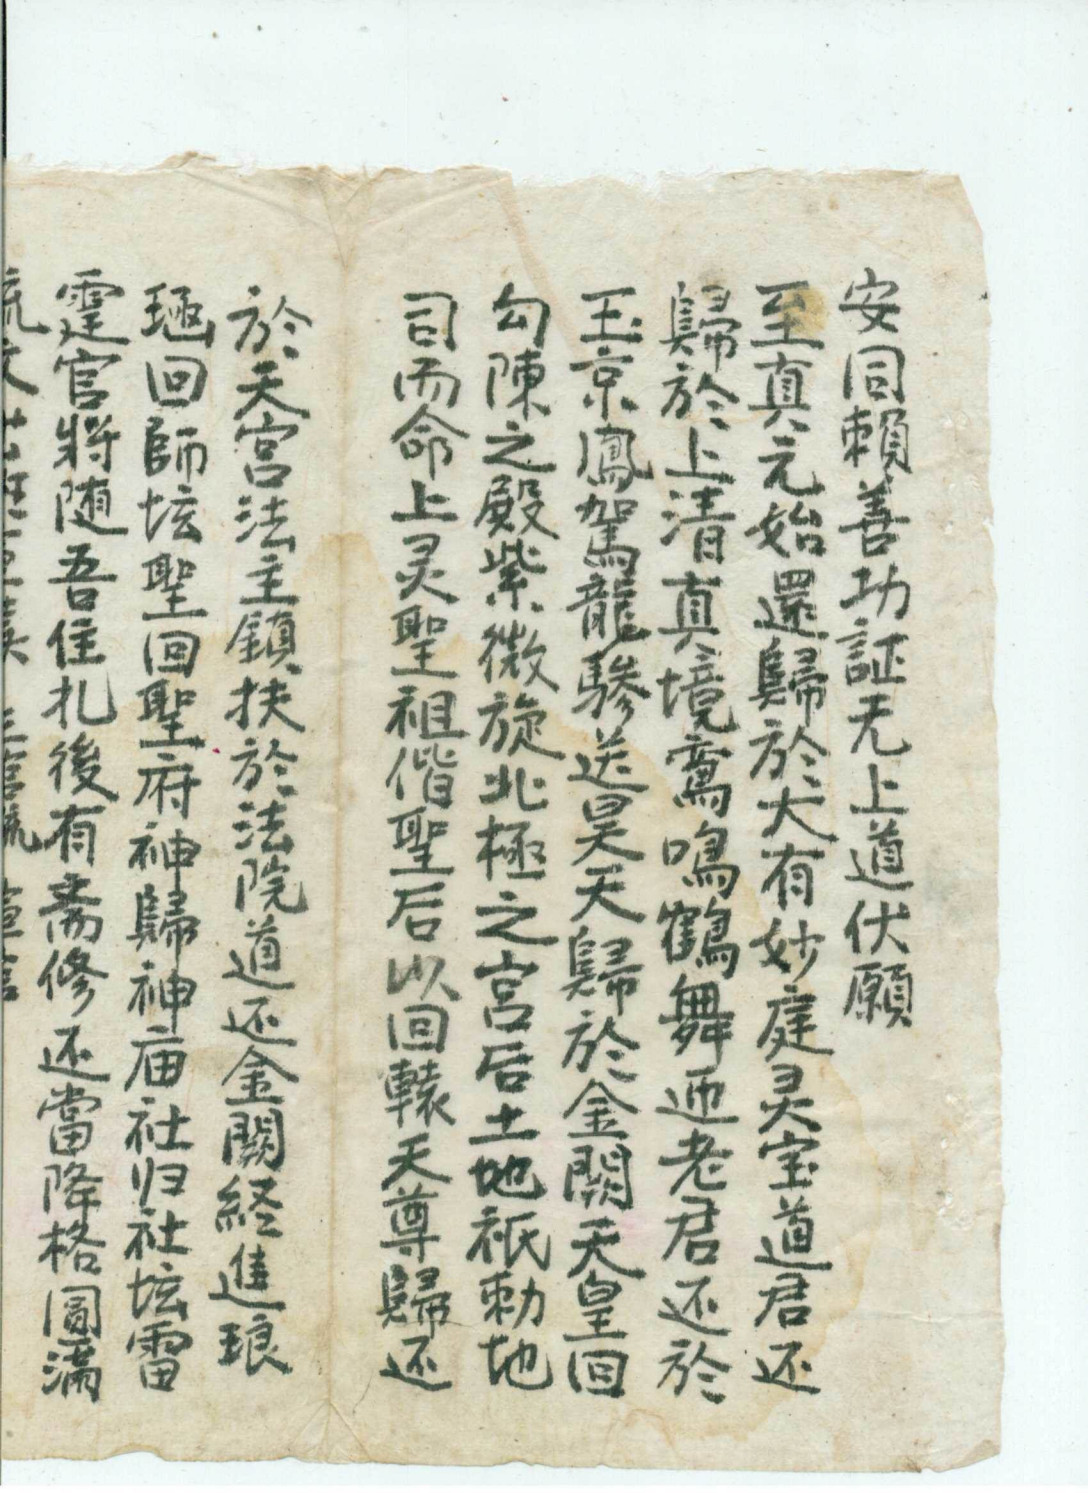 安同賴善功証无上道伏願
至真元始還歸於大有妙庭灵宝道君还
歸於上清真境鸾鳴鶴舞迊老君还於
玉京鳳駕龍驂送昊天歸於金闕天皇回
勾陳之殿紫微旋北極之宮后土地祇勅地
司而命上灵聖祖偕聖后以回轅天尊歸还
於天宫法主鎮扶於法院道还金闕経進琅
凾回師坛聖回聖府神歸神庙社归社坛雷
霆官将随吾住扎後有斋修还當降格圓满